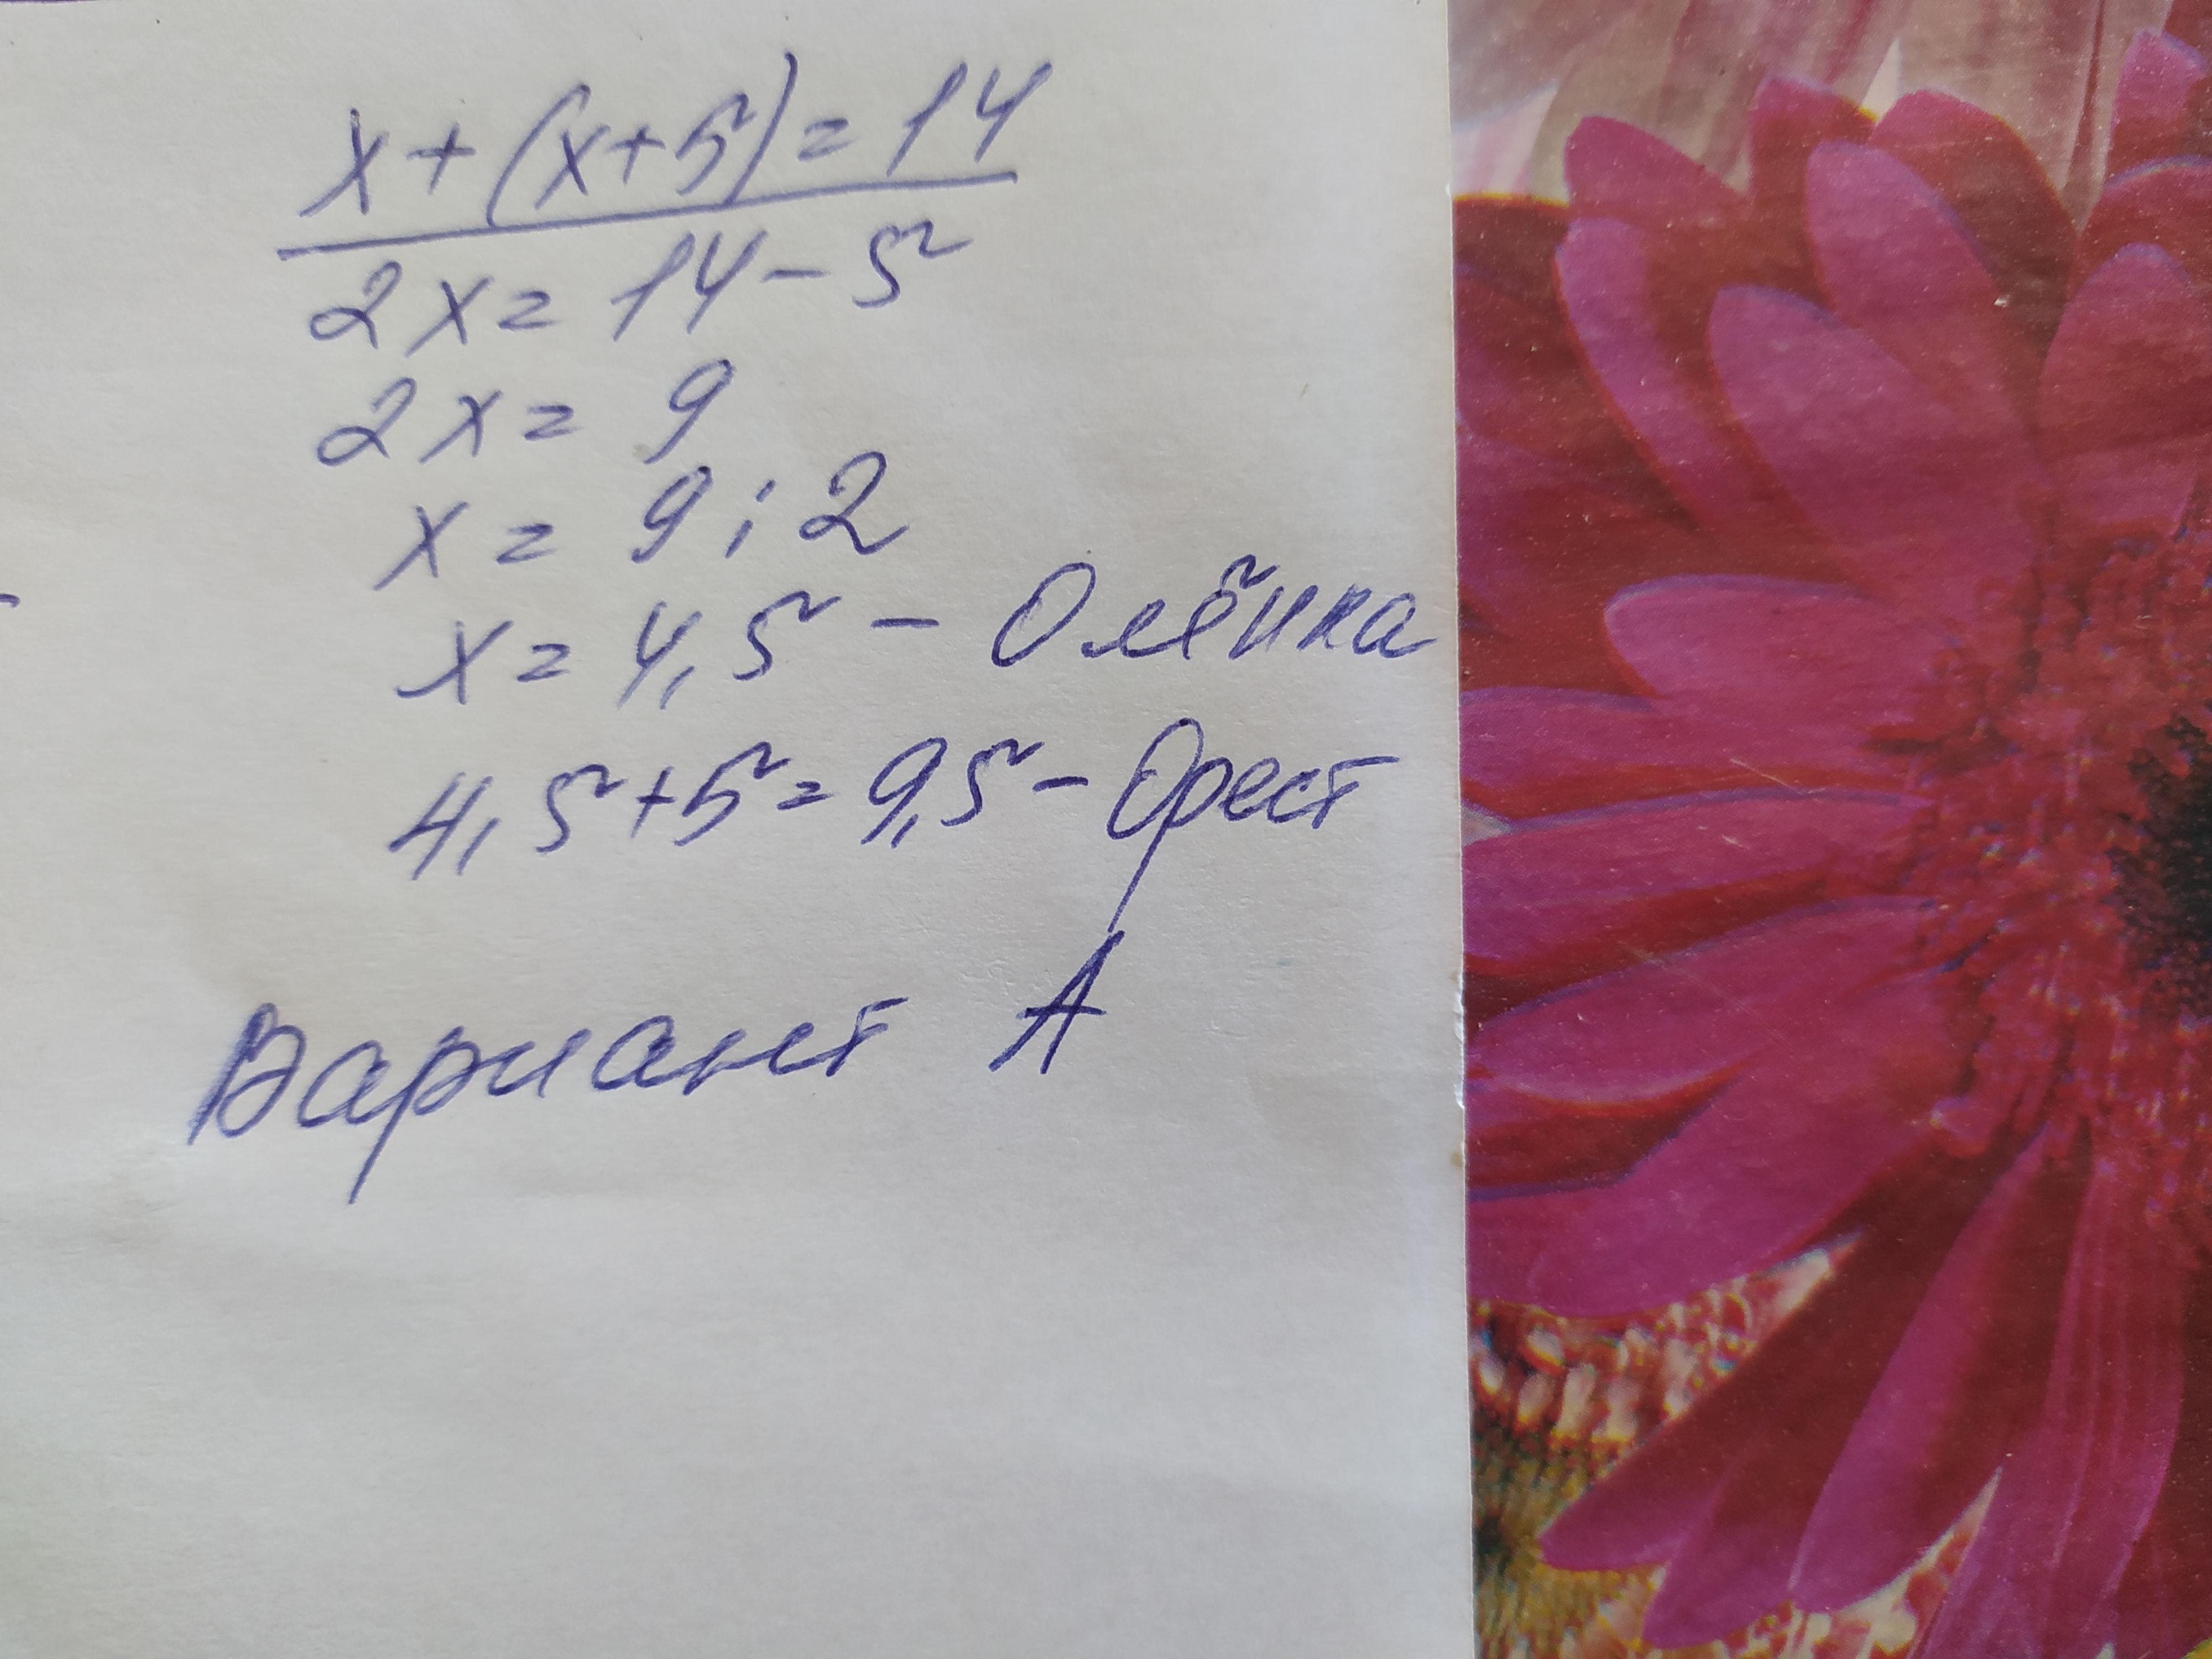 x+(x+5)=14
2x=14-5
2x=9
x=9:2
x=4,5-Олёнка
4,5+5=9,5-Орест
Вариант А